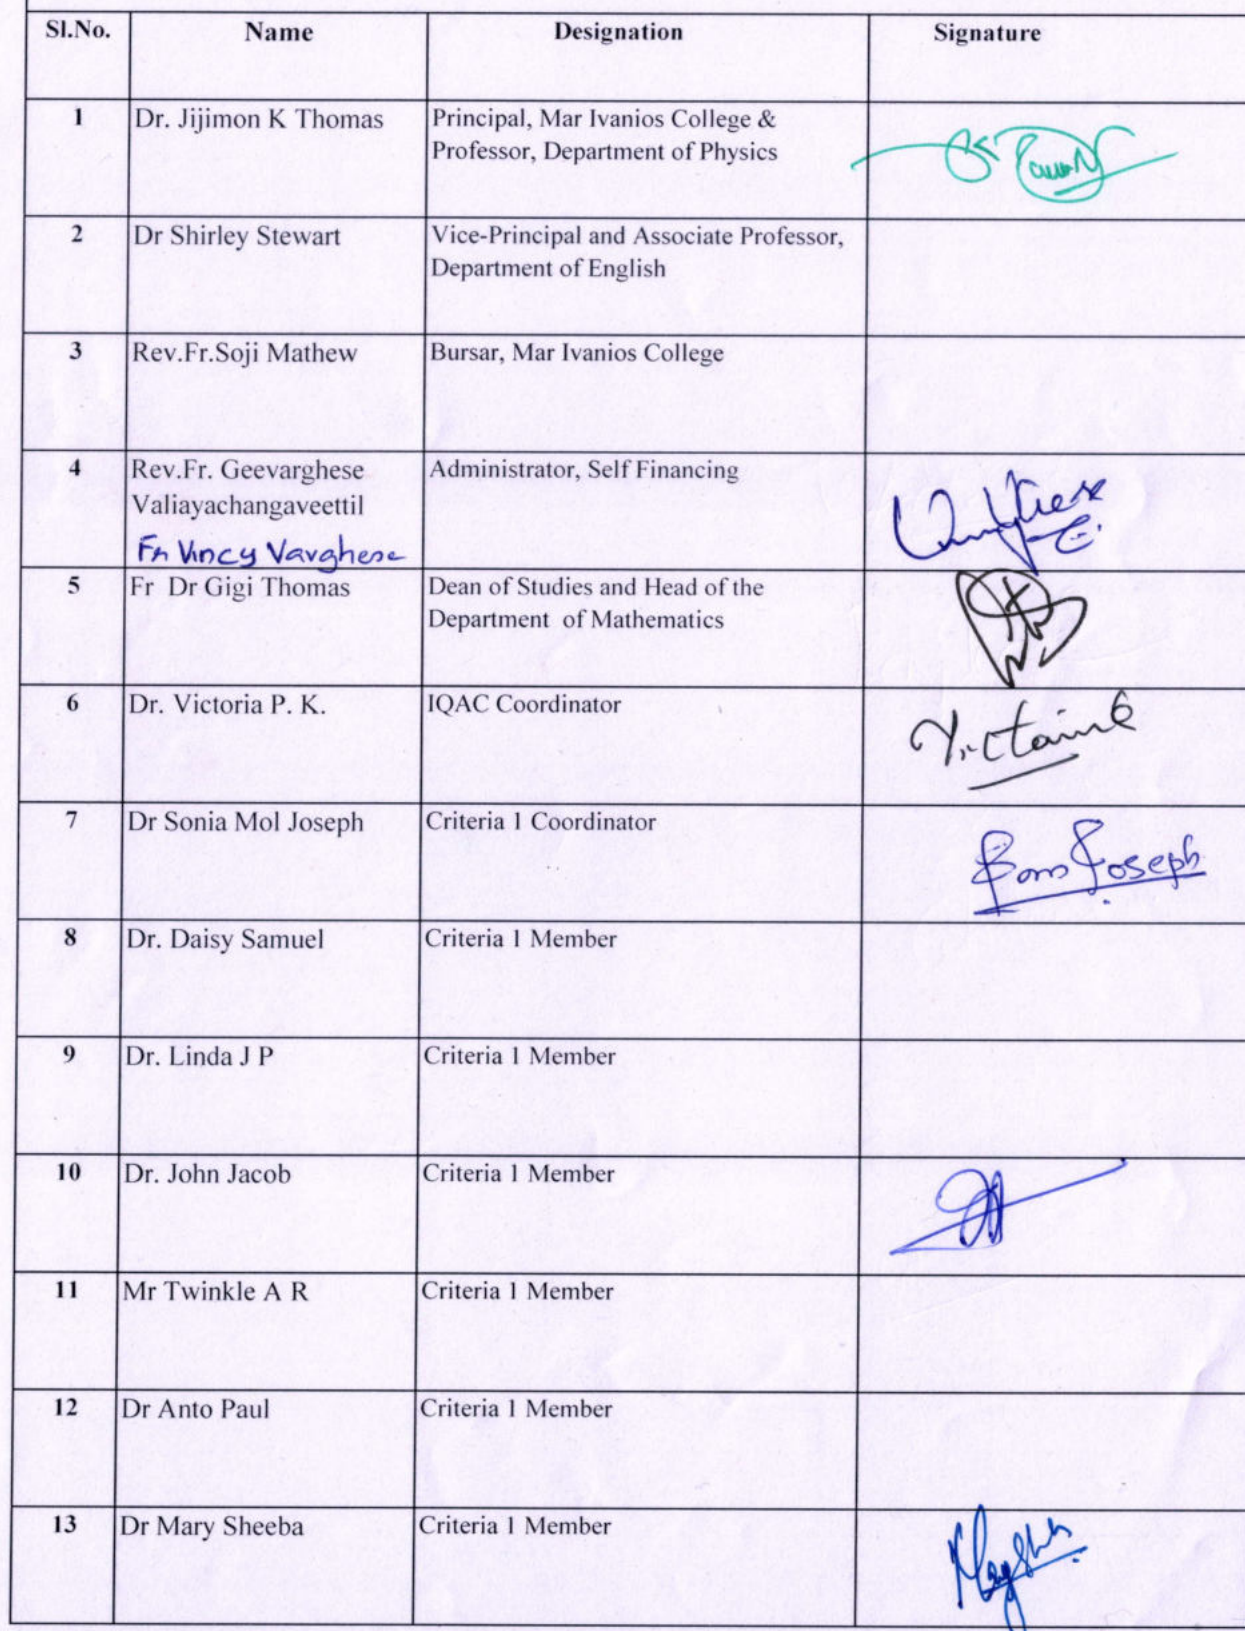 Sl.No. Name Designation Signature
1 Dr. Jijimon K Thomas Principal, Mar Ivanios College &
Professor, Department of Physics
2 Dr Shirley Stewart Vice-Principal and Associate Professor,
Department of English
3 Rev.Fr.Soji Mathew Bursar, Mar Ivanios College
4 Rev.Fr. Geevarghese Administrator, Self Financing
Valiayachangaveettil
Fr Vincy Varghese
5 Fr Dr Gigi Thomas Dean of Studies and Head of the
Department of Mathematics
6 Dr. Victoria P. K. IQAC Coordinator
7 Dr Sonia Mol Joseph Criteria 1 Coordinator
Joseph
8 Dr. Daisy Samuel Criteria 1 Member
9 Dr. Linda J P Criteria 1 Member
10 Dr. John Jacob Criteria 1 Member
11 Mr Twinkle A R Criteria 1 Member
12 Dr Anto Paul Criteria 1 Member
13 Dr Mary Sheeba Criteria 1 Member